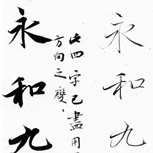 永和九
此四字已盡用
方向之變
永和九